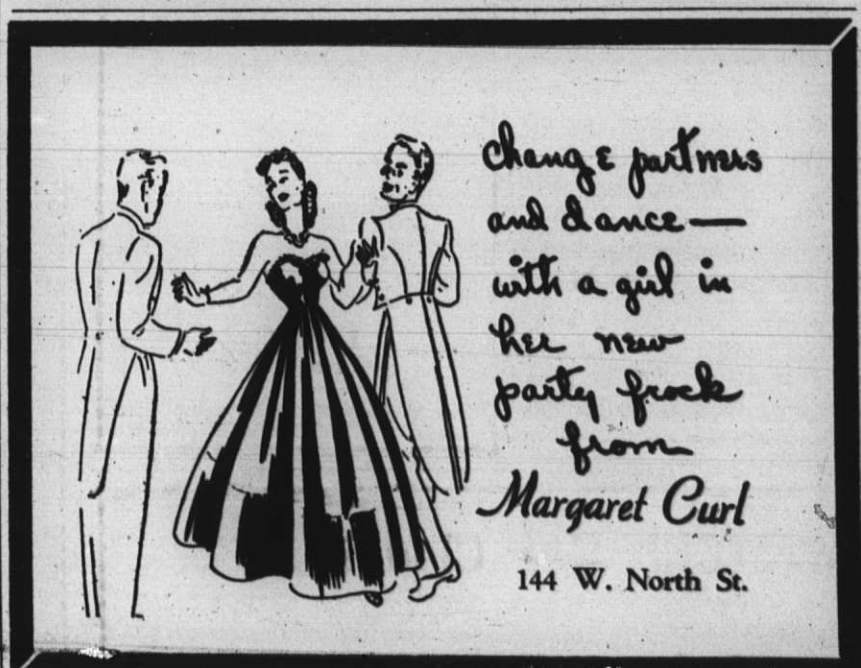 change partners
and dance—
with a girl in
her new
party frock
from
Margaret Curl
144 W. North St.